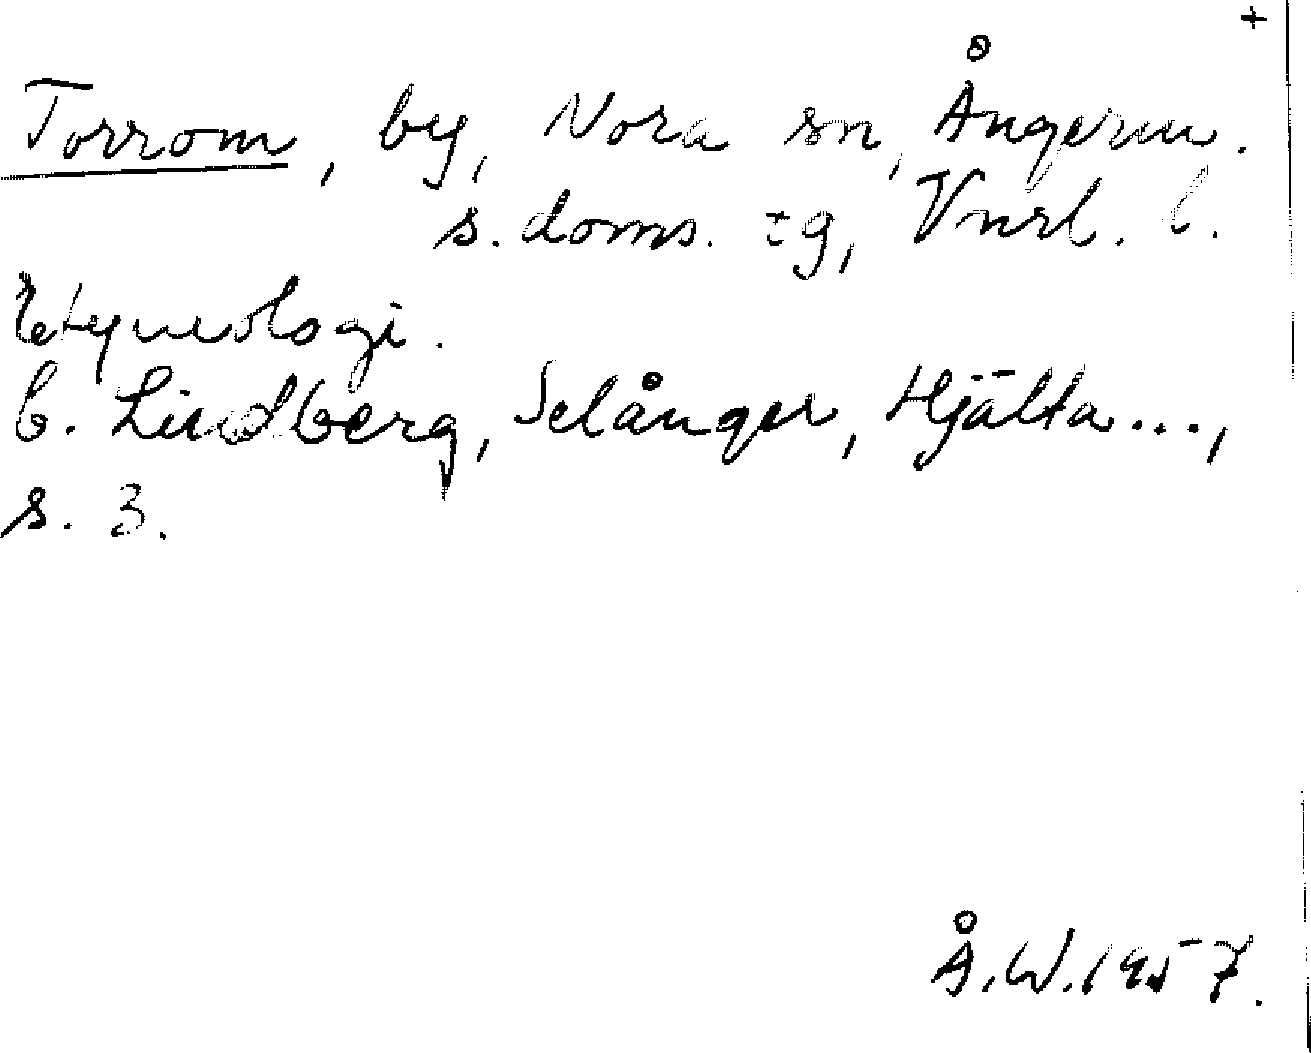 +
Torrom, by, Nora sn, Ångerm.
s. doms. tg, Vnrl. l.
Etymologi.
C. Lindberg, Selånger, Hjälta...,
s. 3.
Å.W. 1957.